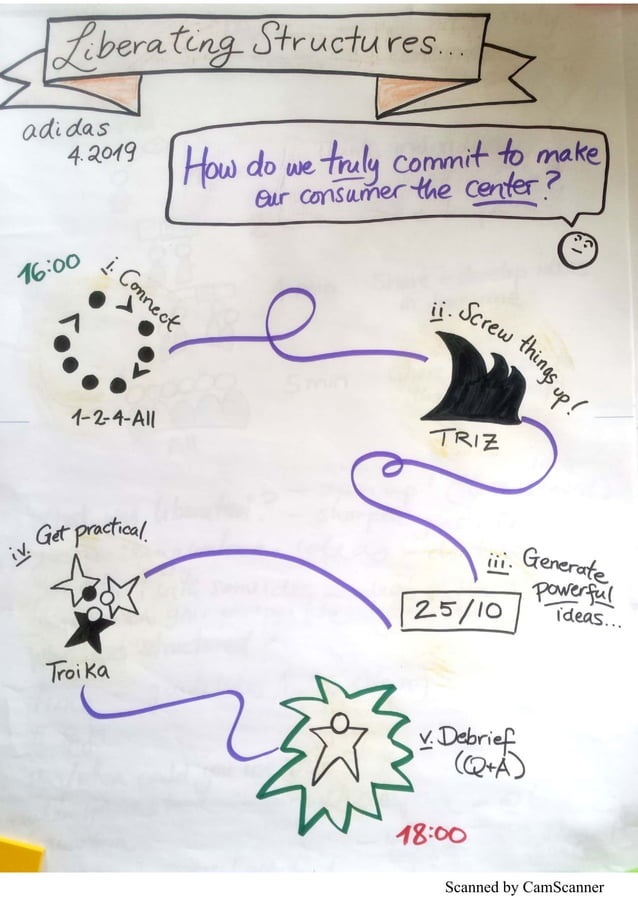 Liberating Structures...
adidas
4.2019
How do we truly commit to make
our consumer the center?
16:00
i. Connect
1-2-4-All
ii. Screw things up!
TRIZ
iii. Generate
powerful
ideas...
25/10
iv. Get practical.
Troika
v. Debrief
(Q+A)
18:00
Scanned by CamScanner